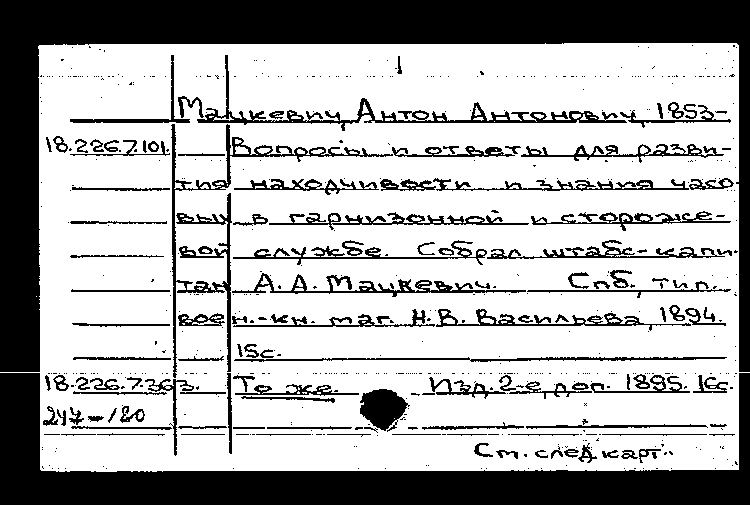 Мацкевич, Антон Антонович, 1853-
18.226.7.101. Вопросы и ответы для разви-
тия находчивости и знания часо-
вым в гарнизонной и стороже-
вой службе. Собрал штабс-капи-
тан А. А. Мацкевич. Спб, тип.
воен.-кн. маг. Н. В. Васильева, 1894.
15с.
18.226.7.363. То же. Изд. 2-е, доп. 1895. 16с.
247-120
См. след. карт.